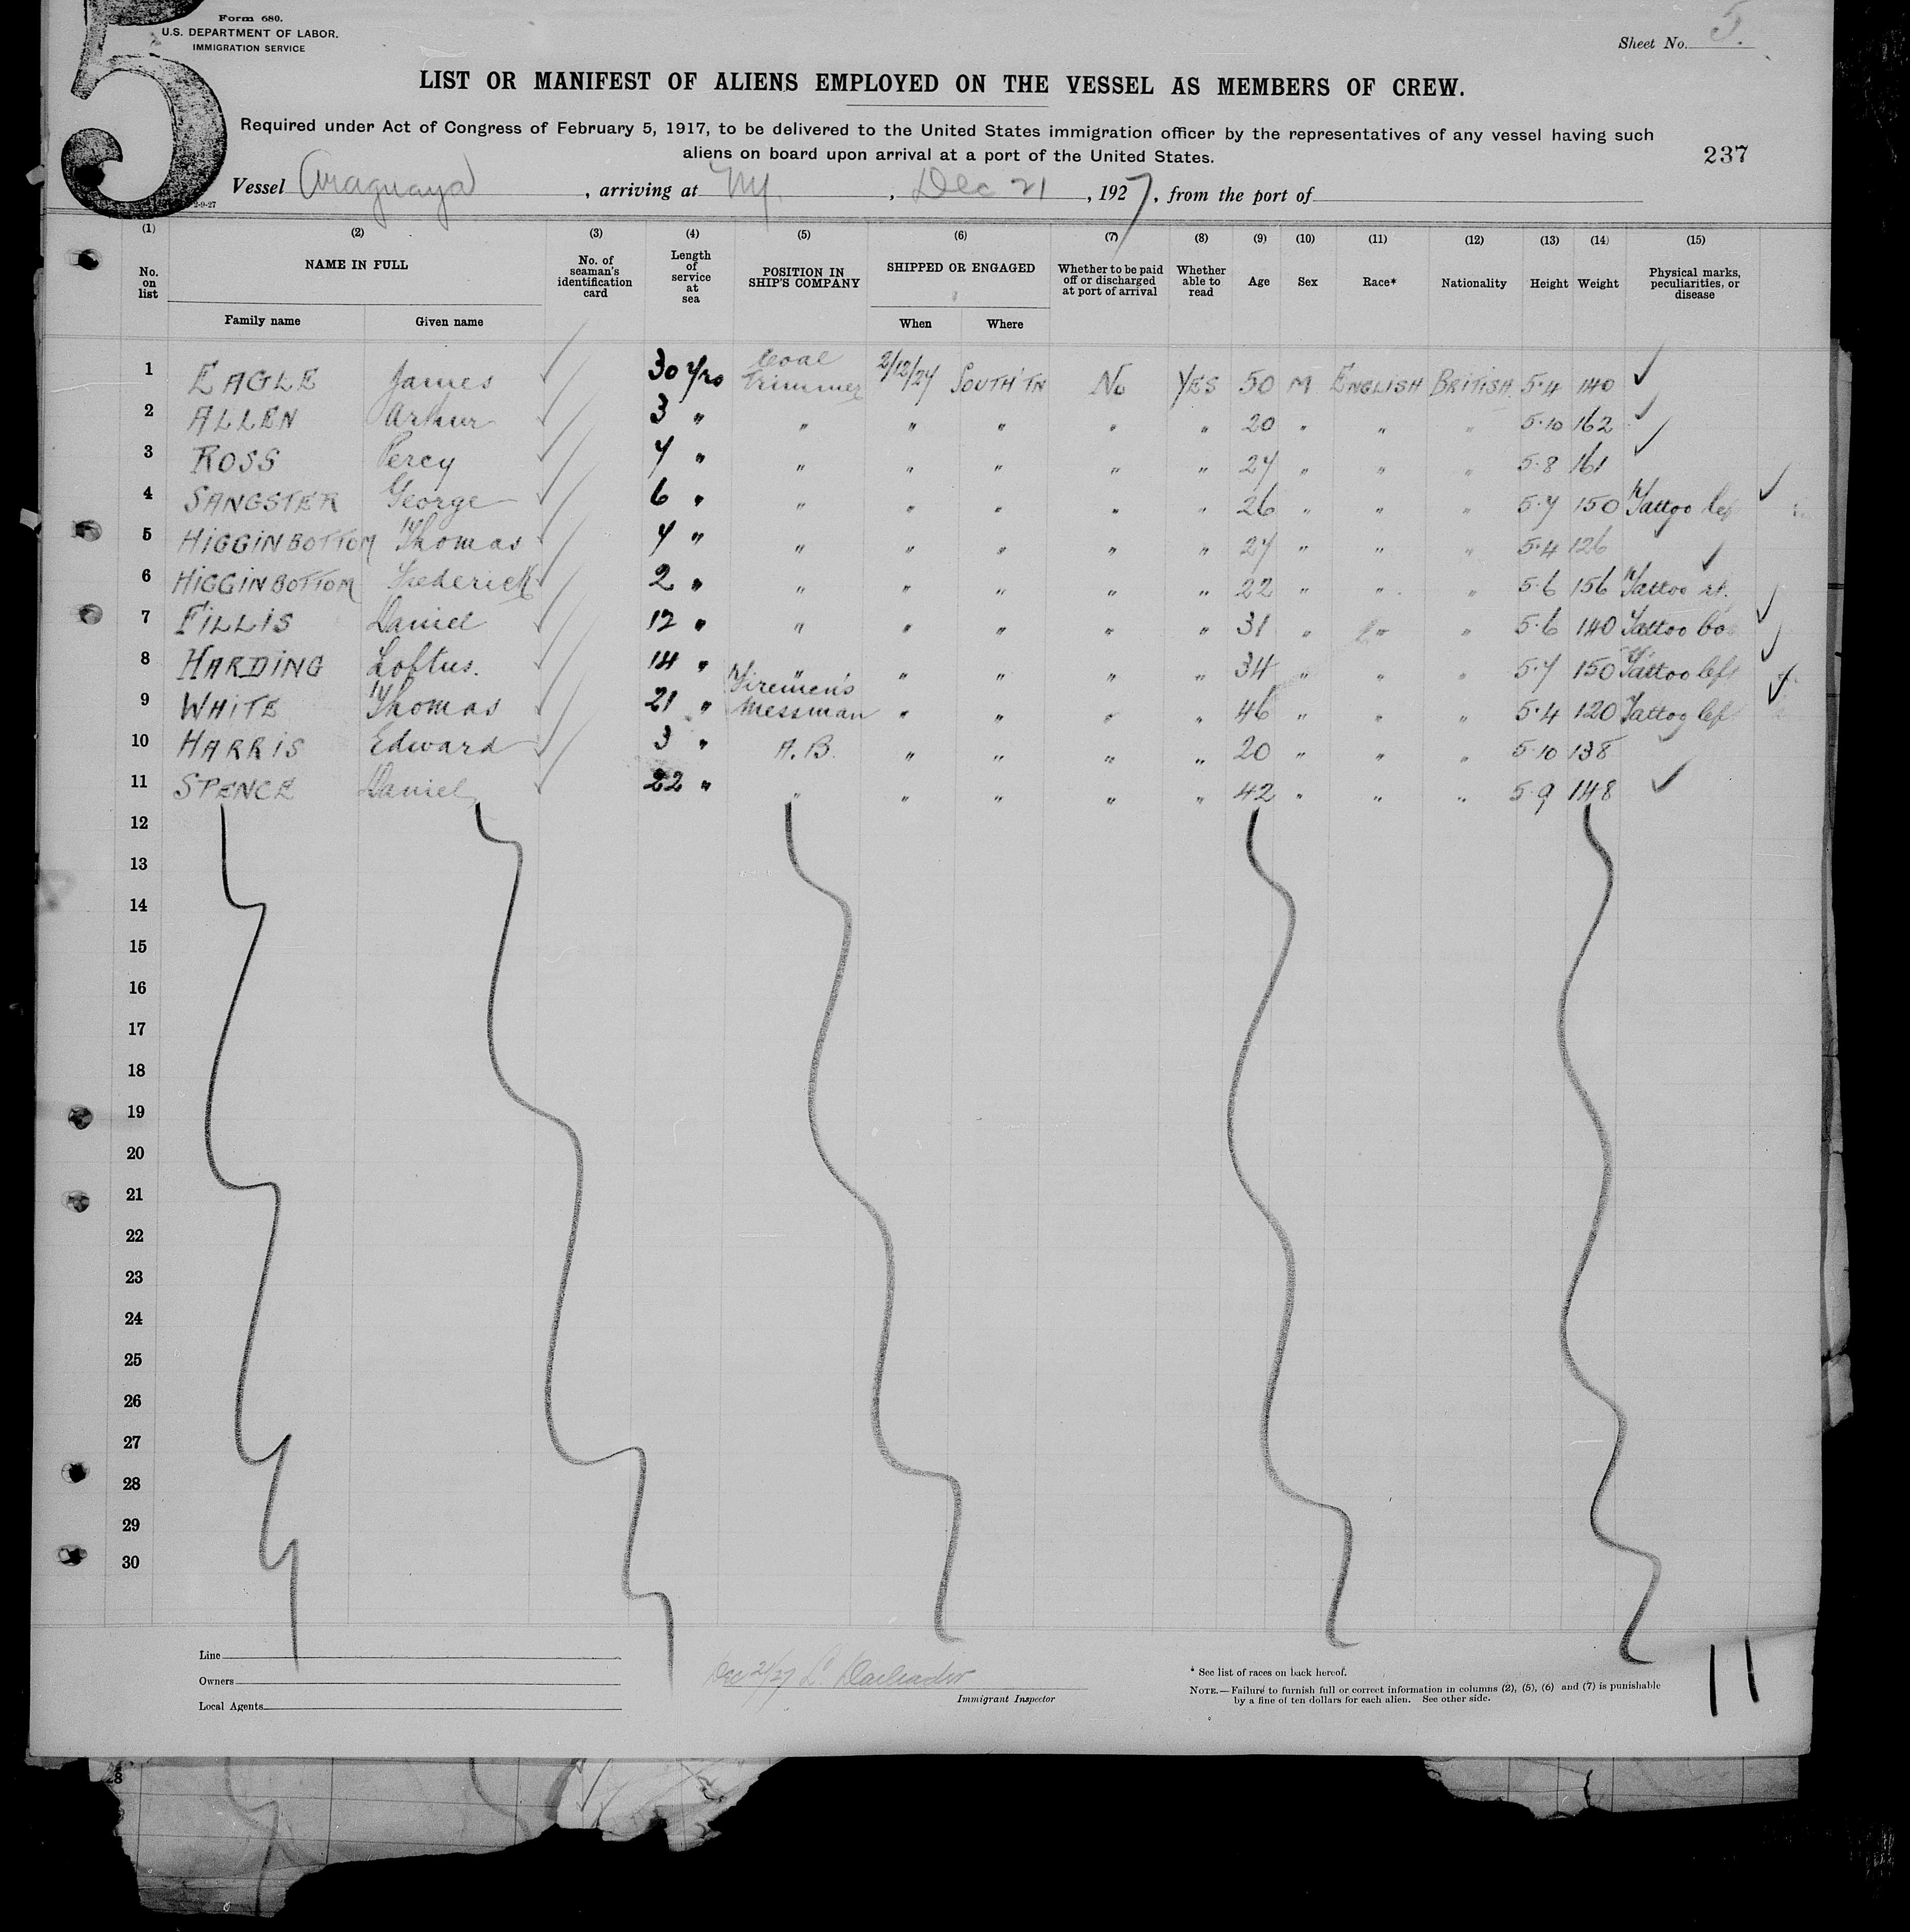 5
Form 680.
U.S. DEPARTMENT OF LABOR.
IMMIGRATION SERVICE
Sheet No. 5.
LIST OR MANIFEST OF ALIENS EMPLOYED ON THE VESSEL AS MEMBERS OF CREW.
Required under Act of Congress of February 5, 1917, to be delivered to the United States immigration officer by the representatives of any vessel having such
aliens on board upon arrival at a port of the United States.
237
Vessel Araguaya, arriving at NY., Dec 21, 1927, from the port of
(1) (2) (3) (4) (5) (6) (7) (8) (9) (10) (11) (12) (13) (14) (15)
No. on list NAME IN FULL Family name Given name No. of seaman's identification card Length of service at sea POSITION IN SHIP'S COMPANY SHIPPED OR ENGAGED When Where Whether to be paid off or discharged at port of arrival Whether able to read Age Sex Race* Nationality Height Weight Physical marks, peculiarities, or disease
1 EAGLE James 30 yrs Coal Trimmer 2/12/27 SOUTH'TN No YES 50 M ENGLISH BRITISH 5.4 140
2 ALLEN Arthur 3 " " " " " " 20 " " " 5.10 162
3 ROSS Percy 7 " " " " " " 27 " " " 5.8 161
4 SANGSTER George 6 " " " " " " 26 " " " 5.7 150 Tattoo lef
5 HIGGINBOTTOM Thomas 7 " " " " " " 27 " " " 5.4 126
6 HIGGINBOTTOM Frederick 2 " " " " " " 22 " " " 5.6 156 Tattoo rt.
7 FILLIS Daniel 12 " " " " " " 31 " " " 5.6 140 Tattoo bo
8 HARDING Loftus. 14 " " " " " " 34 " " " 5.7 150 Tattoo left
9 WHITE Thomas 21 " Firemen's Messman " " " " 46 " " " 5.4 120 Tattoo left
10 HARRIS Edward 3 " A.B. " " " " 20 " " " 5.10 138
11 SPENCE Daniel 22 " " " " " " 42 " " " 5.9 148
12
13
14
15
16
17
18
19
20
21
22
23
24
25
26
27
28
29
30
Line
Owners
Local Agents
Dec 21/27
Immigrant Inspector
* See list of races on back hereof.
NOTE.—Failure to furnish full or correct information in columns (2), (5), (6) and (7) is punishable
by a fine of ten dollars for each alien. See other side.
11
28